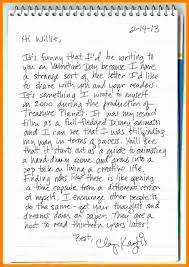 2-14-13
Hi Willie,
It's funny that I'd be writing to
you on Valentine's Day because I have
a strange sort of love letter I'd like to
share with you and your readers.
It's something I wrote to myself
in 2000 during the production of
Treasure Planet. It was my second
film as a full-fledged Disney animator
and I can see that I was still finding
my way in terms of process. You'll see
that it starts out as a guide to animating
a hand-drawn scene and grows into a
pep talk on living a creative life.
Finding notes like these is like opening
a time capsule from a different version
of myself. I encourage other people to
do the same - get your thoughts and
dreams down on paper. They are a
hoot to read thirteen years later!
Best,
Clay Kaytis